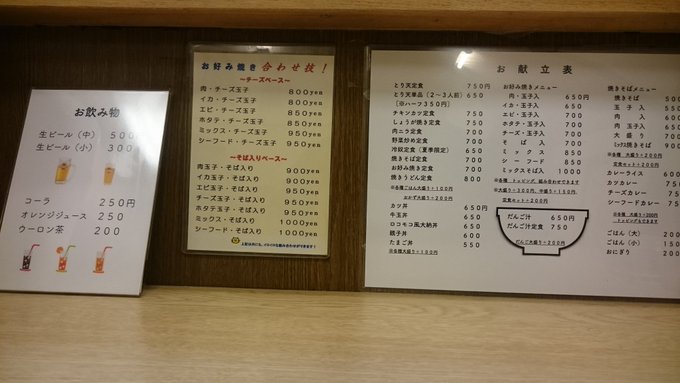 お飲み物
生ビール（中） 500
生ビール（小） 300
コーラ 250円
オレンジジュース 250
ウーロン茶 200
お好み焼き 合わせ技！
〜チーズベース〜
肉・チーズ玉子 800yen
イカ・チーズ玉子 850yen
エビ・チーズ玉子 850yen
ホタテ・チーズ玉子 850yen
ミックス・チーズ玉子 950yen
シーフード・チーズ玉子 950yen
〜そば入りベース〜
肉玉子・そば入り 900yen
イカ玉子・そば入り 950yen
エビ玉子・そば入り 950yen
チーズ玉子・そば入り 950yen
ホタテ玉子・そば入り 950yen
ミックス・そば入り 1000yen
シーフード・そば入り 1000yen
上記以外にも、イロイロな組み合わせができます！
お献立表
とり天定食 750円
とり天単品（2〜3人前） 650
［※ハーフ350円］
チキンカツ定食 750
しょうが焼き定食 750
肉ニラ定食 700
野菜炒め定食 700
冷奴定食（夏季限定） 650
焼きそば定食 700
お好み焼き定食 700
焼きうどん定食 800
※各種ごはん大盛り＋100円
おかず大盛り＋200円
カツ丼 650
牛玉丼 650
ロコモコ風大納丼 650
親子丼 600
たまご丼 550
※各種大盛り＋150円
お好み焼きメニュー
肉・玉子入 650円
イカ・玉子入 700
エビ・玉子入 700
ホタテ・玉子入 700
チーズ・玉子入 700
そば入 700
ミックス 850
シーフード 850
ミックスそば入 1000
※各種 トッピング、組み合わせできます
定食セット＋200円
だんご汁 650円
だんご汁定食 750
だんご大盛り＋200円
焼きそばメニュー
焼きそば
玉子入
肉入
肉玉子入
大盛り
ミックス焼きそば 900
※各種 大盛り＋200円
定食セット＋200円
カレーライス 600
カツカレー 750
チーズカレー
シーフードカレー
※各種 大盛り＋200円
トッピングもできます
ごはん（大） 200
ごはん（小） 150
おにぎり 200